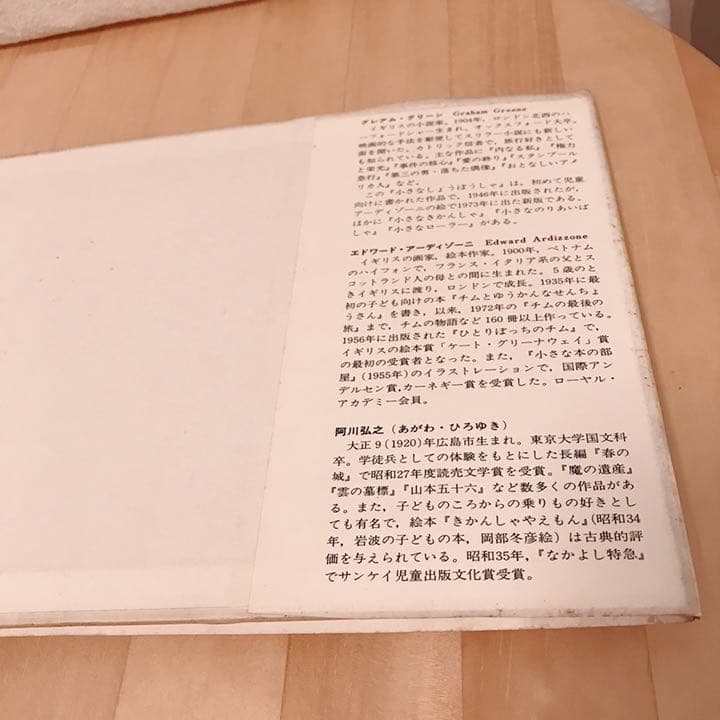 グレアム・グリーン Graham Greene
イギリスの小説家。1904年，ロンドン北西のハ
ーフォードシャー生まれ。オックスフォード大卒。
映画的な手法を駆使してスリラー小説にも新しい
面を開いた。カトリック信者で，旅行好きとして
も知られている。主な作品に『内なる私』『権力
と栄光』『事件の核心』『愛の終り』『スタンブール
急行』『第三の男・落ちた偶像』『おとなしいアメ
リカ人』など。
この『小さなしょうぼうしゃ』は，初めて児童
向けに書かれた作品で，1946年に出版されたが，
アーディゾーニの絵で1973年に出た新版である。
ほかに『小さなきかんしゃ』『小さなのりあいば
しゃ』『小さなローラー』がある。
エドワード・アーディゾーニ Edward Ardizzone
イギリスの画家，絵本作家。1900年，ベトナム
のハイフォンで，フランス・イタリア系の父とス
コットランド人の母との間に生まれた。5歳のと
きイギリスに渡り，ロンドンで成長。1935年に最
初の子ども向けの本『チムとゆうかんなせんちょ
うさん』を書き，以来，1972年の『チムの最後の
旅』まで，チムの物語など160冊以上作っている。
1956年に出版された『ひとりぼっちのチム』で，
イギリスの絵本賞「ケート・グリーナウェイ」賞
の最初の受賞者となった。また，『小さな本の部
屋』(1955年)のイラストレーションで，国際アン
デルセン賞，カーネギー賞を受賞した。ローヤル・
アカデミー会員。
阿川弘之（あがわ・ひろゆき）
大正9(1920)年広島市生まれ。東京大学国文科
卒。学徒兵としての体験をもとにした長編『春の
城』で昭和27年度読売文学賞を受賞。『魔の遺産』
『雲の墓標』『山本五十六』など数多くの作品があ
る。また，子どものころからの乗りもの好きとし
ても有名で，絵本『きかんしゃやえもん』(昭和34
年，岩波の子どもの本，岡部冬彦絵）は古典的評
価を与えられている。昭和35年，『なかよし特急』
でサンケイ児童出版文化賞受賞。